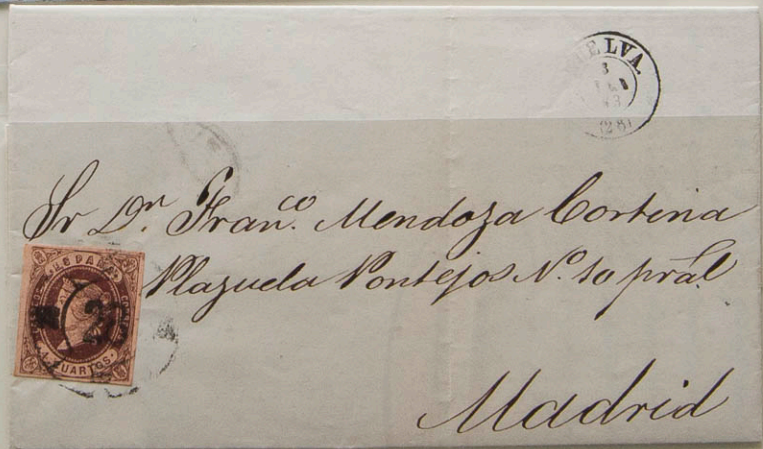 ELVA.
3
(28)
Sr Dn. Franco. Mendoza Cortina
Plazuela Pontejos No. 10 pral
Madrid
ESPAÑA
4 CUARTOS